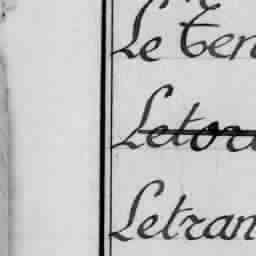 Le Ten
Letor
Letran